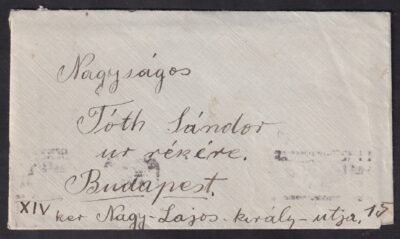 Nagyságos
Tóth Sándor
ur rékére.
Budapest.
XIV ker Nagy-Lajos-király-útja. 15